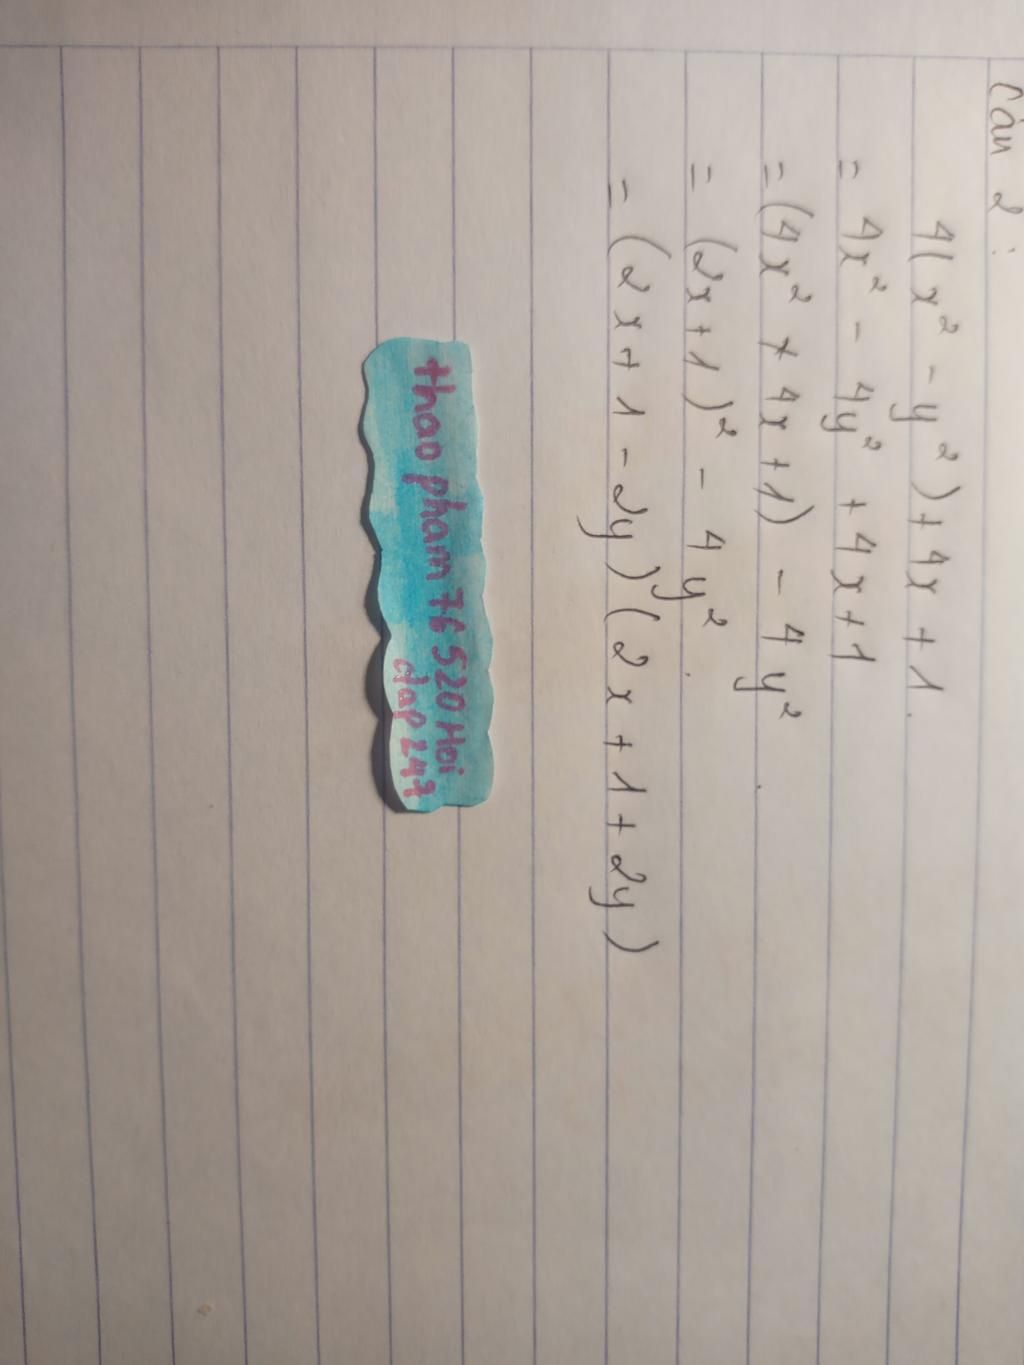 Câu 2 :
4(x² - y²) + 4x + 1.
= 4x² - 4y² + 4x + 1
= (4x² + 4x + 1) - 4y².
= (2x + 1)² - 4y².
= (2x + 1 - 2y)(2x + 1 + 2y)
thao pham 76 520 Hoi
dap 247